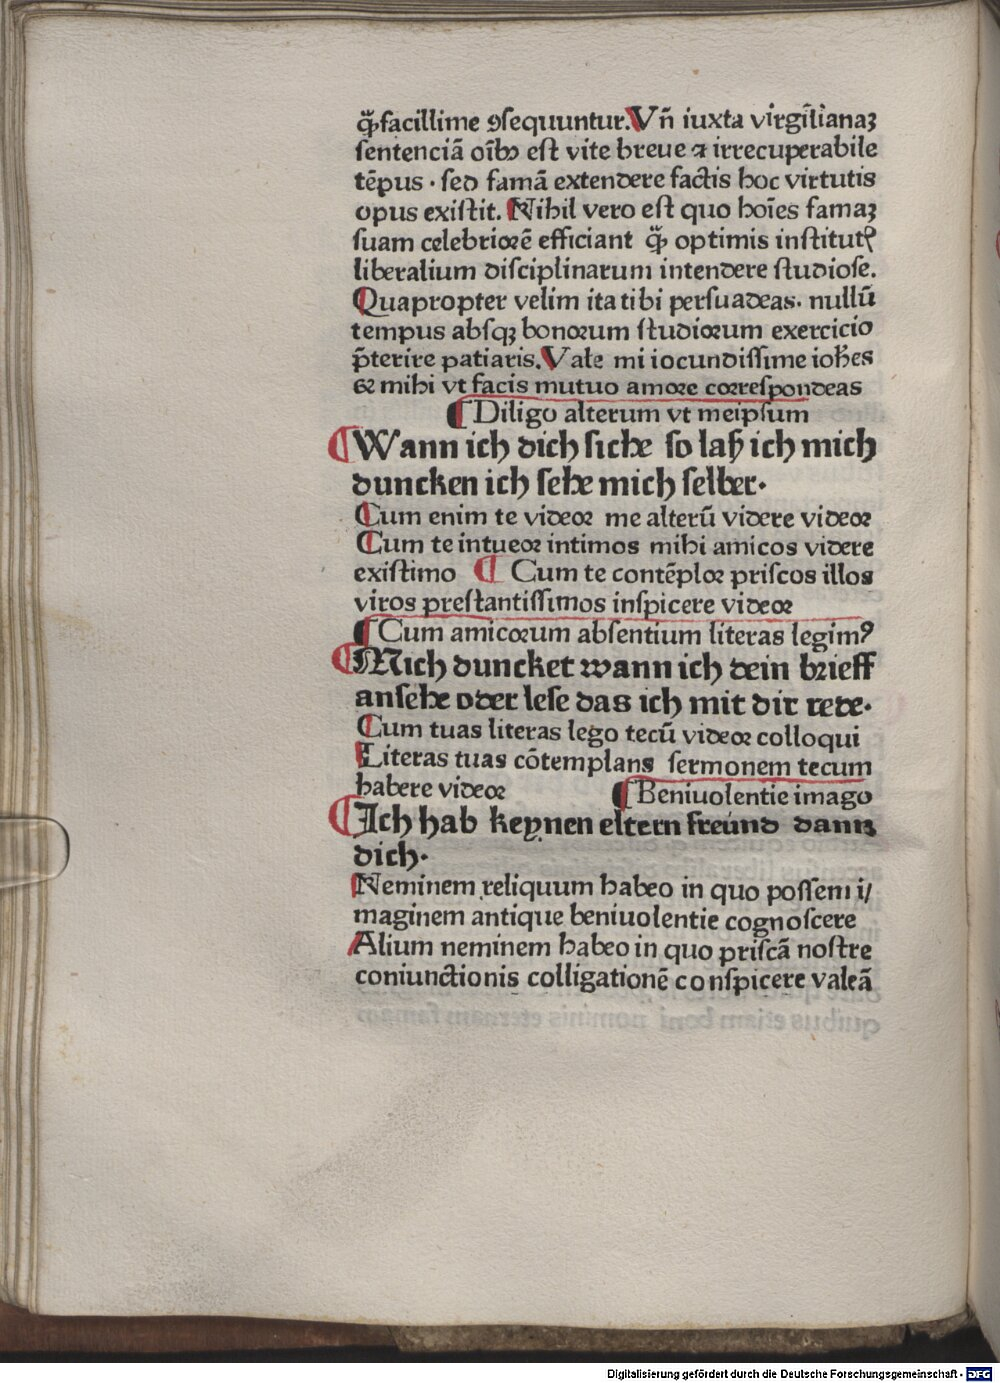 q̃ꝫ facillime ꝯsequuntur. Vñ iuxta virgilianaꝫ
sentenciā oībꝰ est vite breue ⁊ irrecuperabile
tēpus · sed famā extendere factis hoc virtutis
opus existit. Nihil vero est quo hoīes famaꝫ
suam celebriorē efficiant q̃ꝫ optimis institutꝭ
liberalium disciplinarum intendere studiose.
Quapropter velim ita tibi persuadeas. nullū
tempus absqꝫ bonorum studiorum exercicio
p̄terire patiaris. Vale mi iocundissime ioh̄es
& mihi vt facis mutuo amore correspondeas
¶ Diligo alterum vt meipsum
¶ Wann ich dich siche so laß ich mich
duncken ich sehe mich selber.
Cum enim te videor me alterū videre videor
Cum te intueor intimos mihi amicos videre
existimo ¶ Cum te contēplor priscos illos
viros prestantissimos inspicere videor
¶ Cum amicorum absentium literas legimꝰ
¶ Mich duncket wann ich dein brieff
ansehe oder lese das ich mit dir rede.
Cum tuas literas lego tecū videor colloqui
Literas tuas cōtemplans sermonem tecum
habere videor ¶ Beniuolentie imago
¶ Ich hab keynen eltern freund dann
dich.
Neminem reliquum habeo in quo possem i/
maginem antique beniuolentie cognoscere
Alium neminem habeo in quo priscā nostre
coniunctionis colligationē conspicere valeā
Digitalisierung gefördert durch die Deutsche Forschungsgemeinschaft - DFG